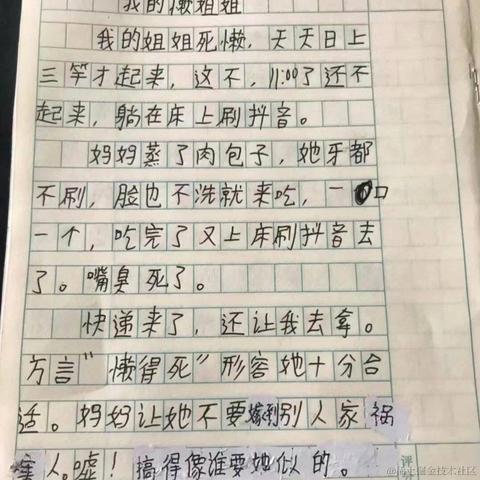 我的懒姐姐
我的姐姐死懒，天天日上
三竿才起来，这不，11:00了还不
起来，躺在床上刷抖音。
妈妈蒸了肉包子，她牙都
不刷，脸也不洗就来吃，一口
一个，吃完了又上床刷抖音去
了。嘴臭死了。
快递来了，还让我去拿。
方言“懒得死”形容她十分合
适。妈妈让她不要嫁到别人家祸
害人。嘘！搞得像谁要她似的。
评
@稀土掘金技术社区